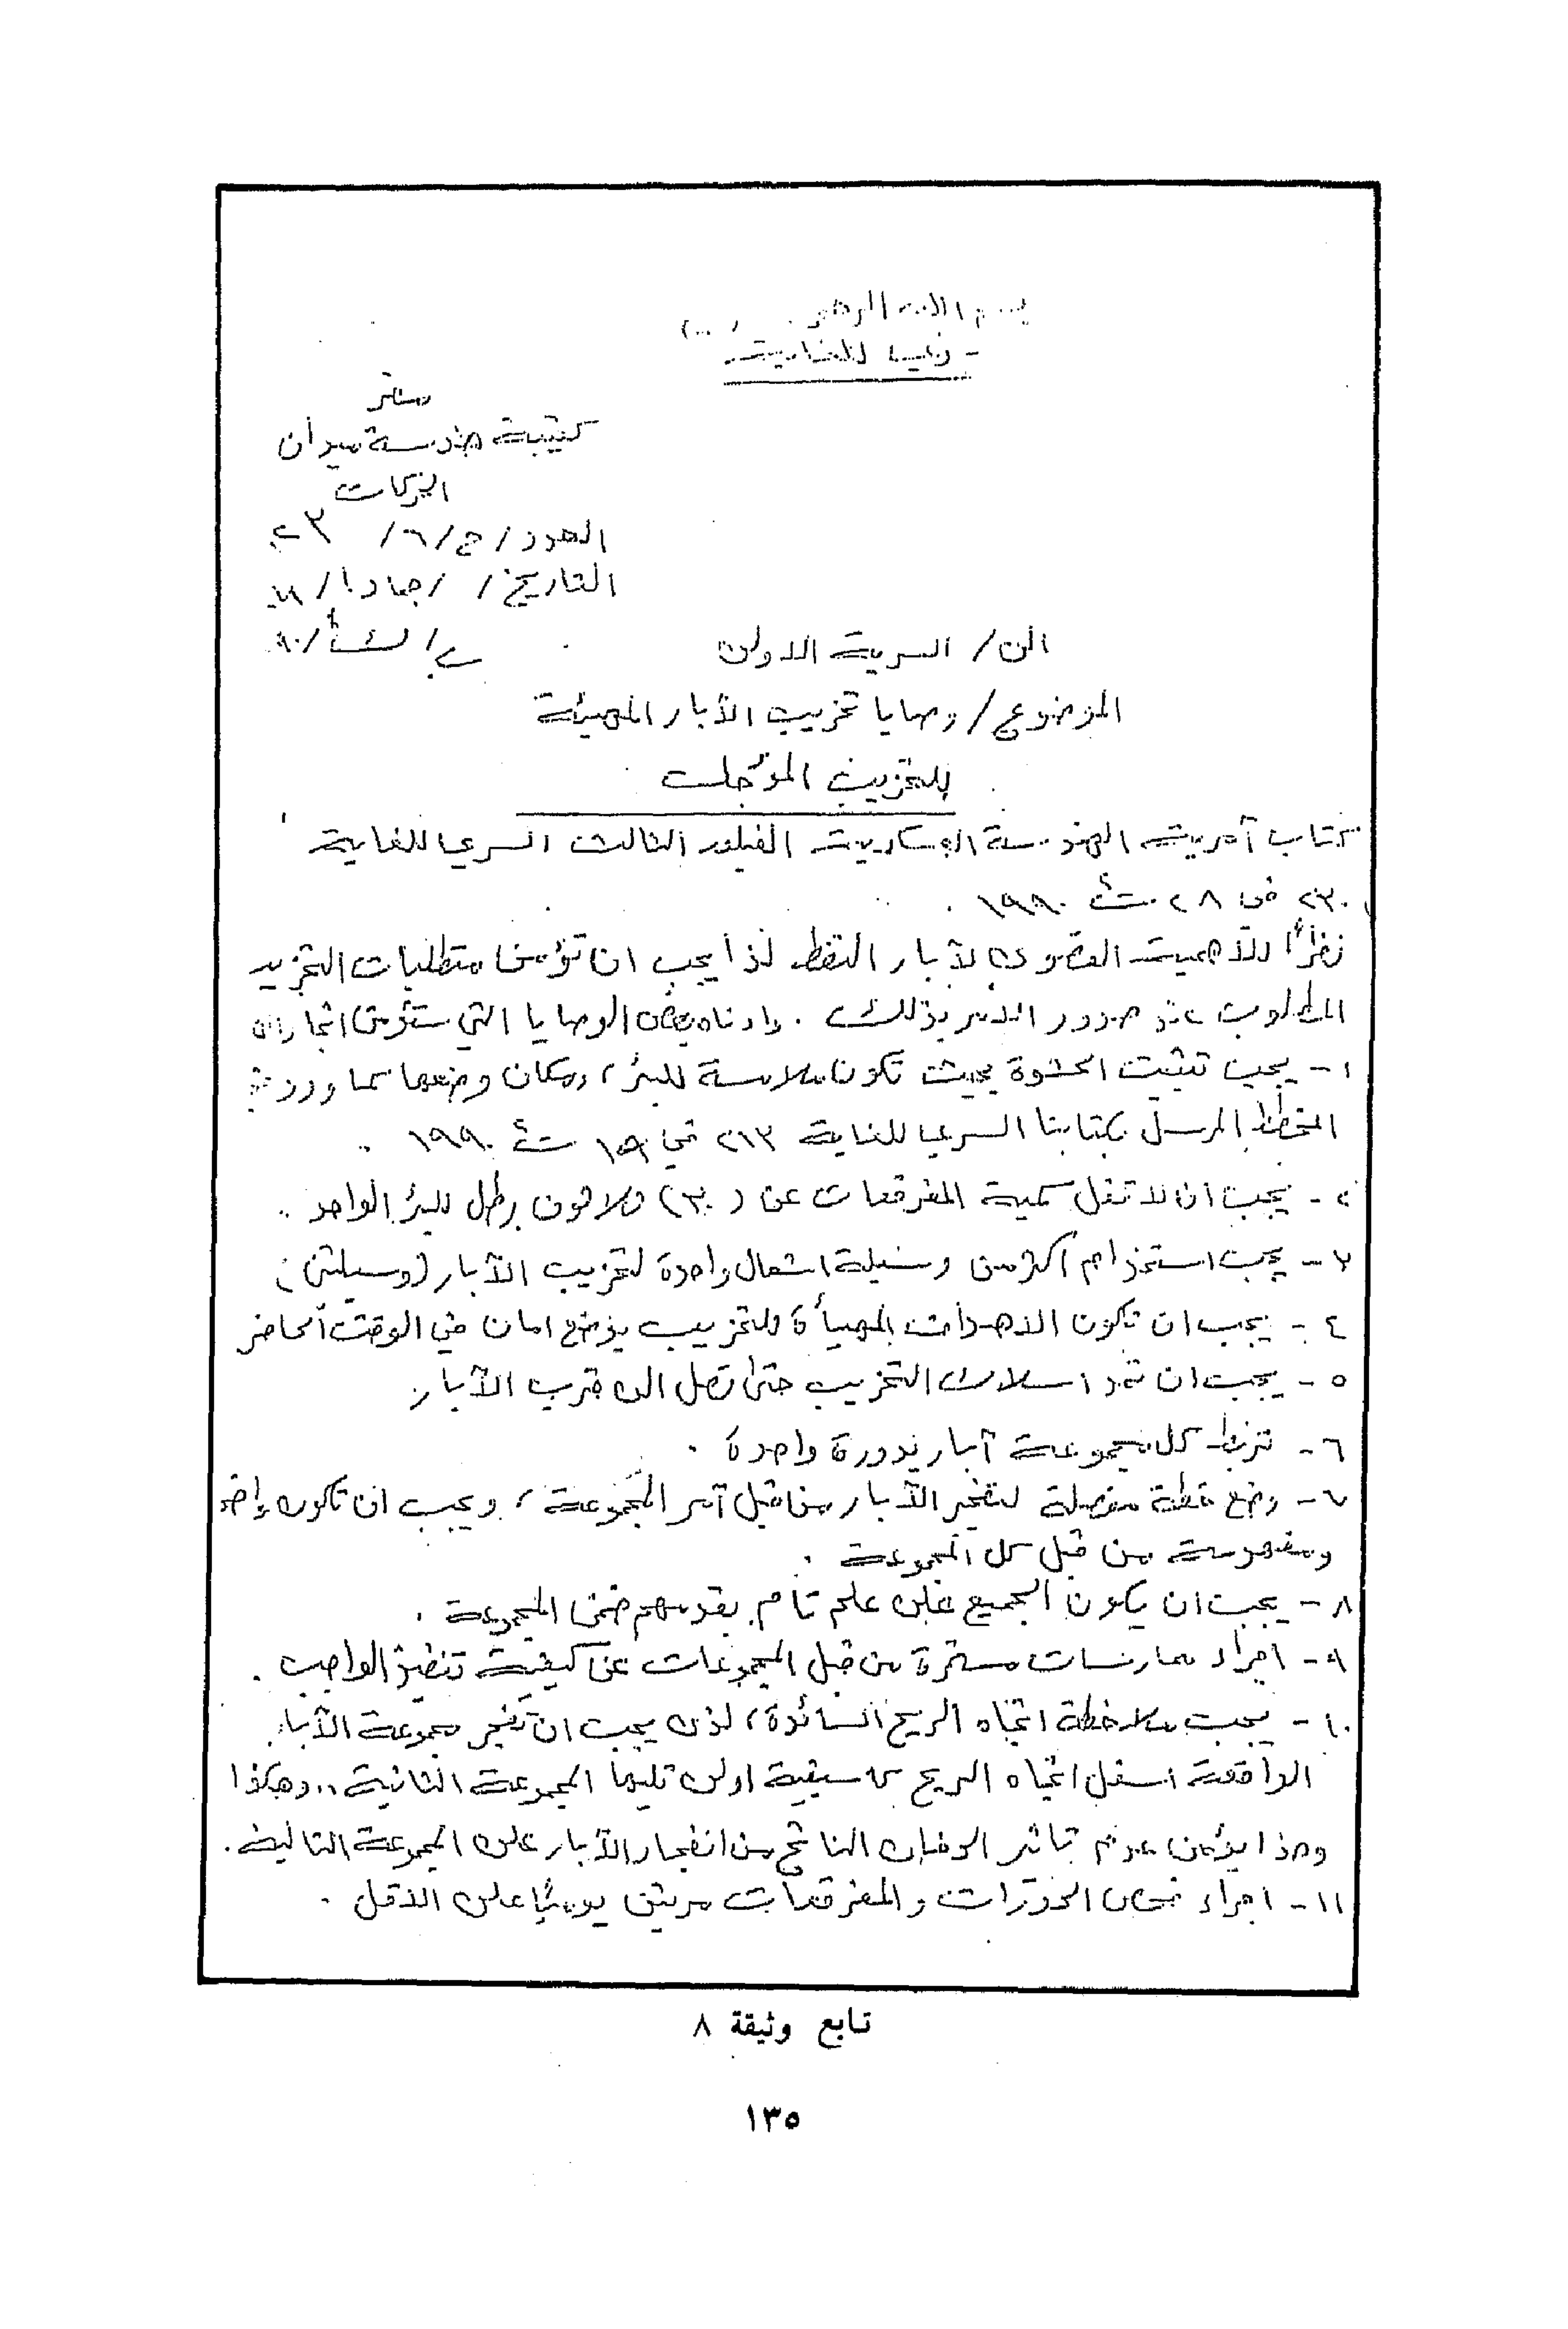 بسم الله الرحمن
سري للغاية
مقر
كتيبة هندسة ميدان
الحركات
العدد / ح / ٦ / ٢٣
التاريخ / / جماد١ /
/ ت٢ / ٩٠
الى / السرية الاولى
الموضوع / وصايا تخريب الآبار المهيئة
للتخريب المؤجلة
كتاب آمرية الهندسة العسكرية الفيلق الثالث السري للغاية
٢٣٠ في ٢٨ ت٢ ١٩٩٠ .
نظراً للأهمية القصوى لآبار النفط لذا يجب ان تؤمن متطلبات التخريب
المطلوب عند صدور الامر بذلك . وادناه بعض الوصايا التي ستؤمن انجاز
١ - يجب تثبيت الحشوة بحيث تكون ملامسة للبئر ، ومكان وضعها كما ورد في
المخطط المرسل بكتابنا السري للغاية ٢١٣ في ١٩ ت٢ ١٩٩٠ .
٢ - يجب ان لا تقل كمية المفرقعات عن (٣٠) ثلاثون رطل للبئر الواحد .
٣ - يجب استخدام اكثر من وسيلة اشعال واحدة لتخريب الآبار (وسيلتين)
٤ - يجب ان تكون الاهداف المهيأة للتخريب بوضع امان في الوقت الحاضر
٥ - يجب ان تمد اسلاك التخريب حتى تصل الى قرب الآبار
٦ - تربط كل مجموعة آبار بدورة واحدة .
٧ - وضع خطة مفصلة لتفجير الآبار من قبل آمر المجموعة ، ويجب ان تكون واضحة
ومفهومة من قبل كل المجموعة .
٨ - يجب ان يكون الجميع على علم تام بقدمهم ضمن المجموعة .
٩ - اجراء ممارسات مستمرة من قبل المجموعات عن كيفية تنفيذ الواجب .
١٠ - يجب ملاحظة اتجاه الريح السائدة ، لذى يجب ان تفجر مجموعة الآبار
الواقعة اسفل اتجاه الريح كاسبقية اولى تليها المجموعة الثانية .. وهكذا
وهذا يؤمن عدم تاثير الدخان الناتج من انفجار الآبار على المجموعة التالية .
١١ - اجراء فحص الدورات والمفرقعات مرتين يومياً على الاقل .
تابع وثيقة ٨
١٣٥